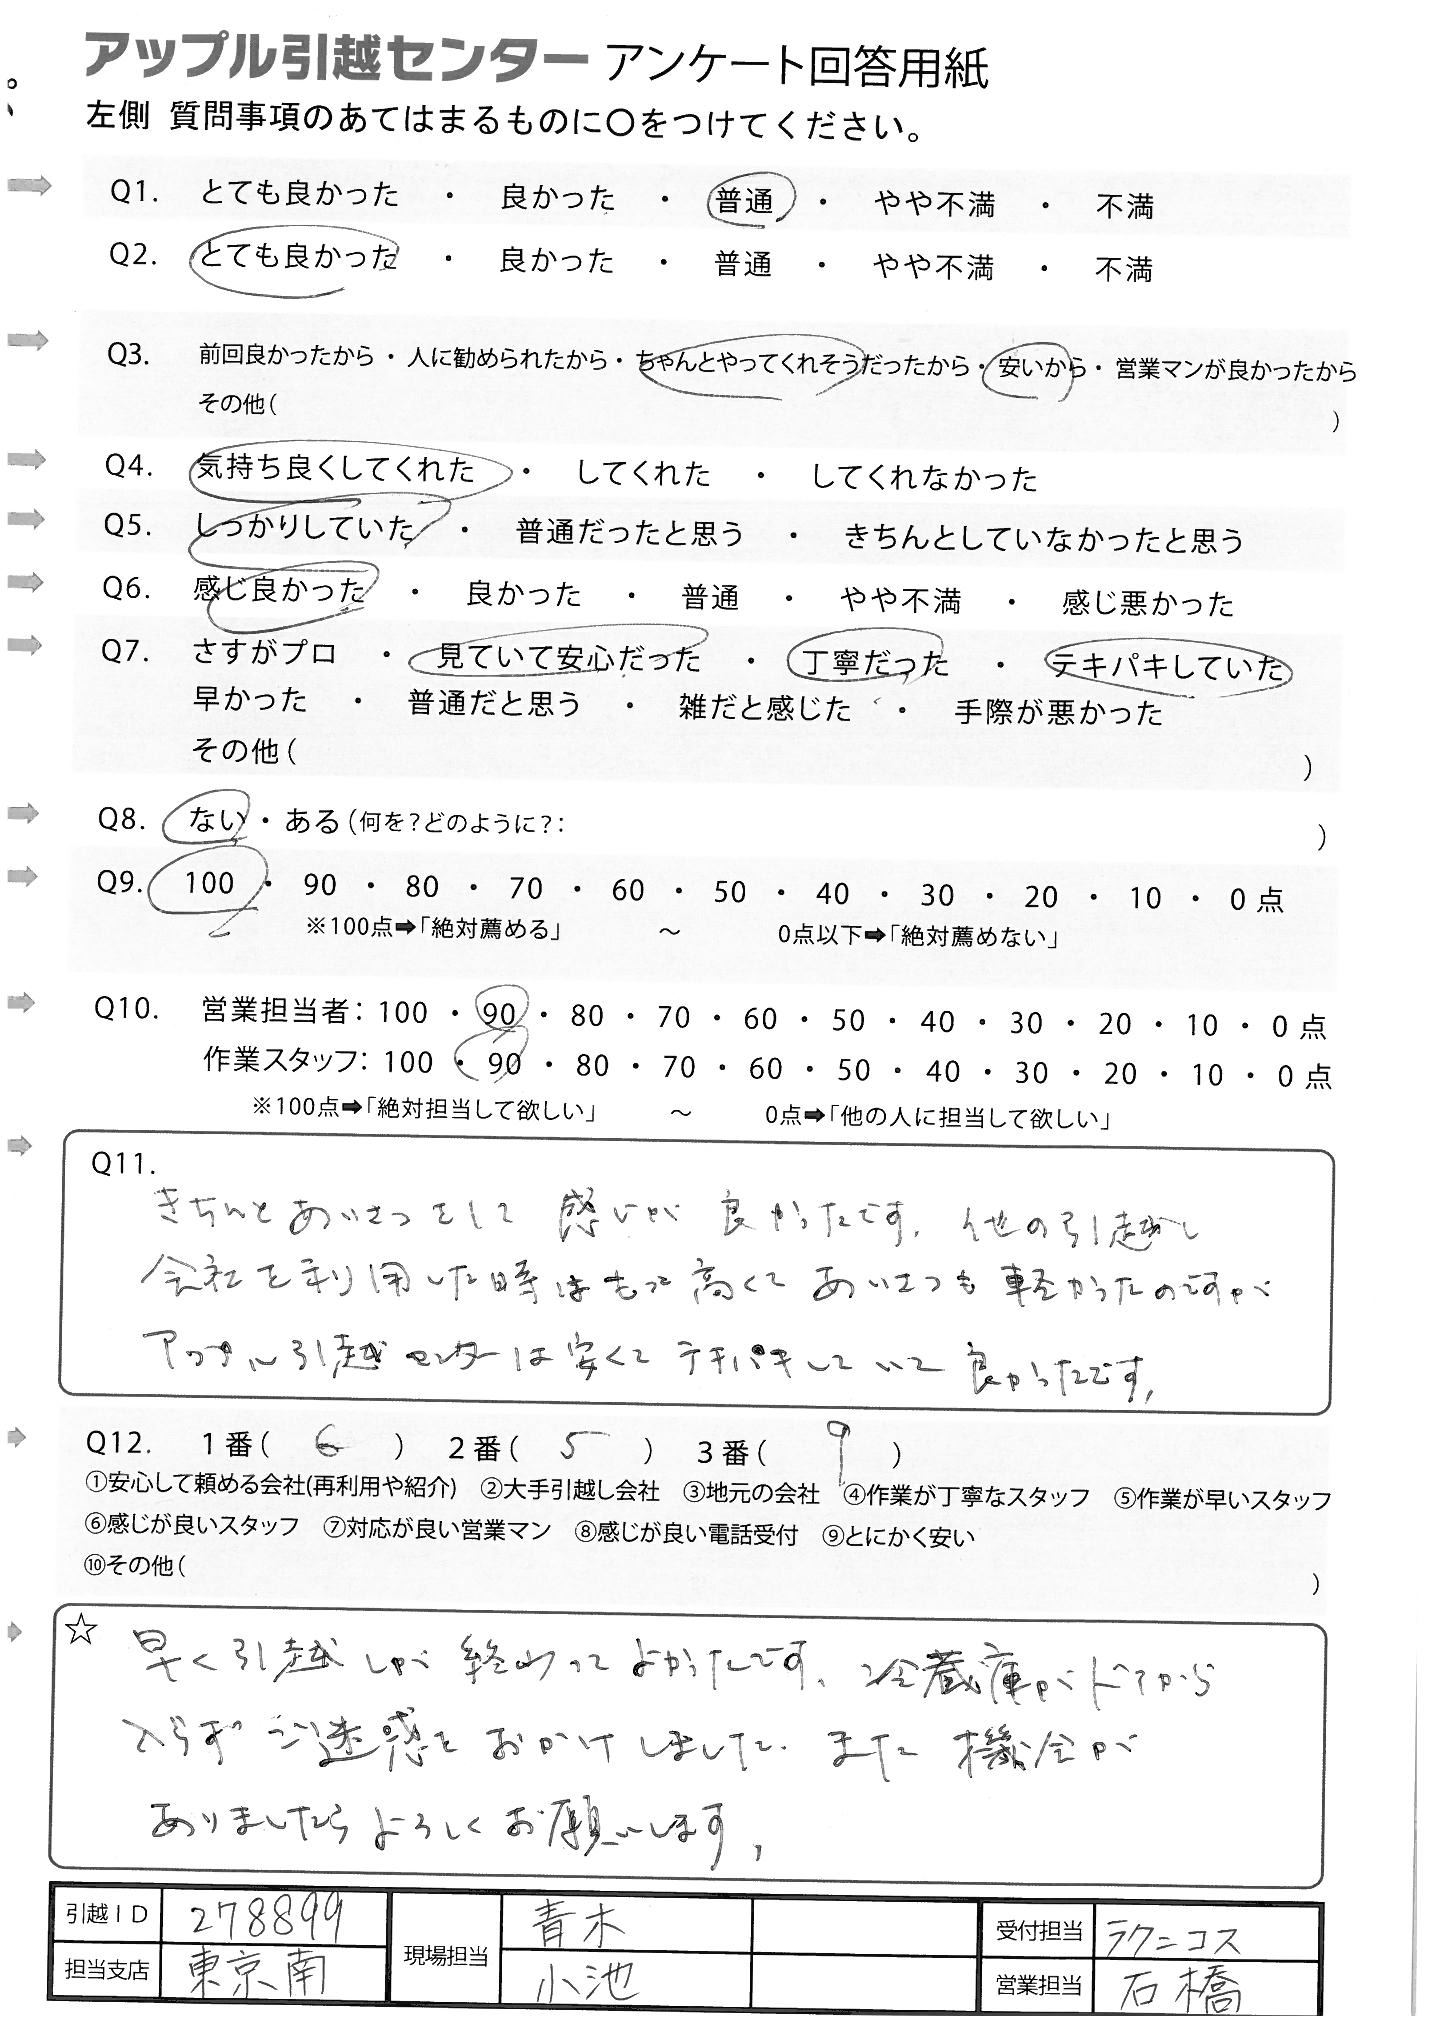 アップル引越センター アンケート回答用紙
左側 質問事項のあてはまるものに○をつけてください。
Q1. とても良かった ・ 良かった ・ 普通 ・ やや不満 ・ 不満
Q2. とても良かった ・ 良かった ・ 普通 ・ やや不満 ・ 不満
Q3. 前回良かったから・人に勧められたから・ちゃんとやってくれそうだったから・安いから・営業マンが良かったから
その他( )
Q4. 気持ち良くしてくれた ・ してくれた ・ してくれなかった
Q5. しっかりしていた ・ 普通だったと思う ・ きちんとしていなかったと思う
Q6. 感じ良かった ・ 良かった ・ 普通 ・ やや不満 ・ 感じ悪かった
Q7. さすがプロ ・ 見ていて安心だった ・ 丁寧だった ・ テキパキしていた
早かった ・ 普通だと思う ・ 雑だと感じた ・ 手際が悪かった
その他( )
Q8. ない・ある(何を?どのように?: )
Q9. 100 ・ 90 ・ 80 ・ 70 ・ 60 ・ 50 ・ 40 ・ 30 ・ 20 ・ 10 ・ 0点
※100点➡「絶対薦める」 ～ 0点以下➡「絶対薦めない」
Q10. 営業担当者: 100 ・ 90 ・ 80 ・ 70 ・ 60 ・ 50 ・ 40 ・ 30 ・ 20 ・ 10 ・ 0点
作業スタッフ: 100 ・ 90 ・ 80 ・ 70 ・ 60 ・ 50 ・ 40 ・ 30 ・ 20 ・ 10 ・ 0点
※100点➡「絶対担当して欲しい」 ～ 0点➡「他の人に担当して欲しい」
Q11.
きちんとあいさつをして 感じが 良かったです。他の引越し
会社を利用した時はもっと高くて あいさつも 軽かったのですが
アップル引越センターは安くて テキパキしていて 良かったです。
Q12. 1番( 6 ) 2番( 5 ) 3番( 9 )
①安心して頼める会社(再利用や紹介) ②大手引越し会社 ③地元の会社 ④作業が丁寧なスタッフ ⑤作業が早いスタッフ
⑥感じが良いスタッフ ⑦対応が良い営業マン ⑧感じが良い電話受付 ⑨とにかく安い
⑩その他( )
☆ 早く引越しが終わってよかったです。冷蔵庫がドアから
入らず ご迷惑を おかけしました。また 機会が
ありましたらよろしくお願いします。
引越ID 278899 現場担当 青木 受付担当 ラクニコス
担当支店 東京南 小池 営業担当 石橋